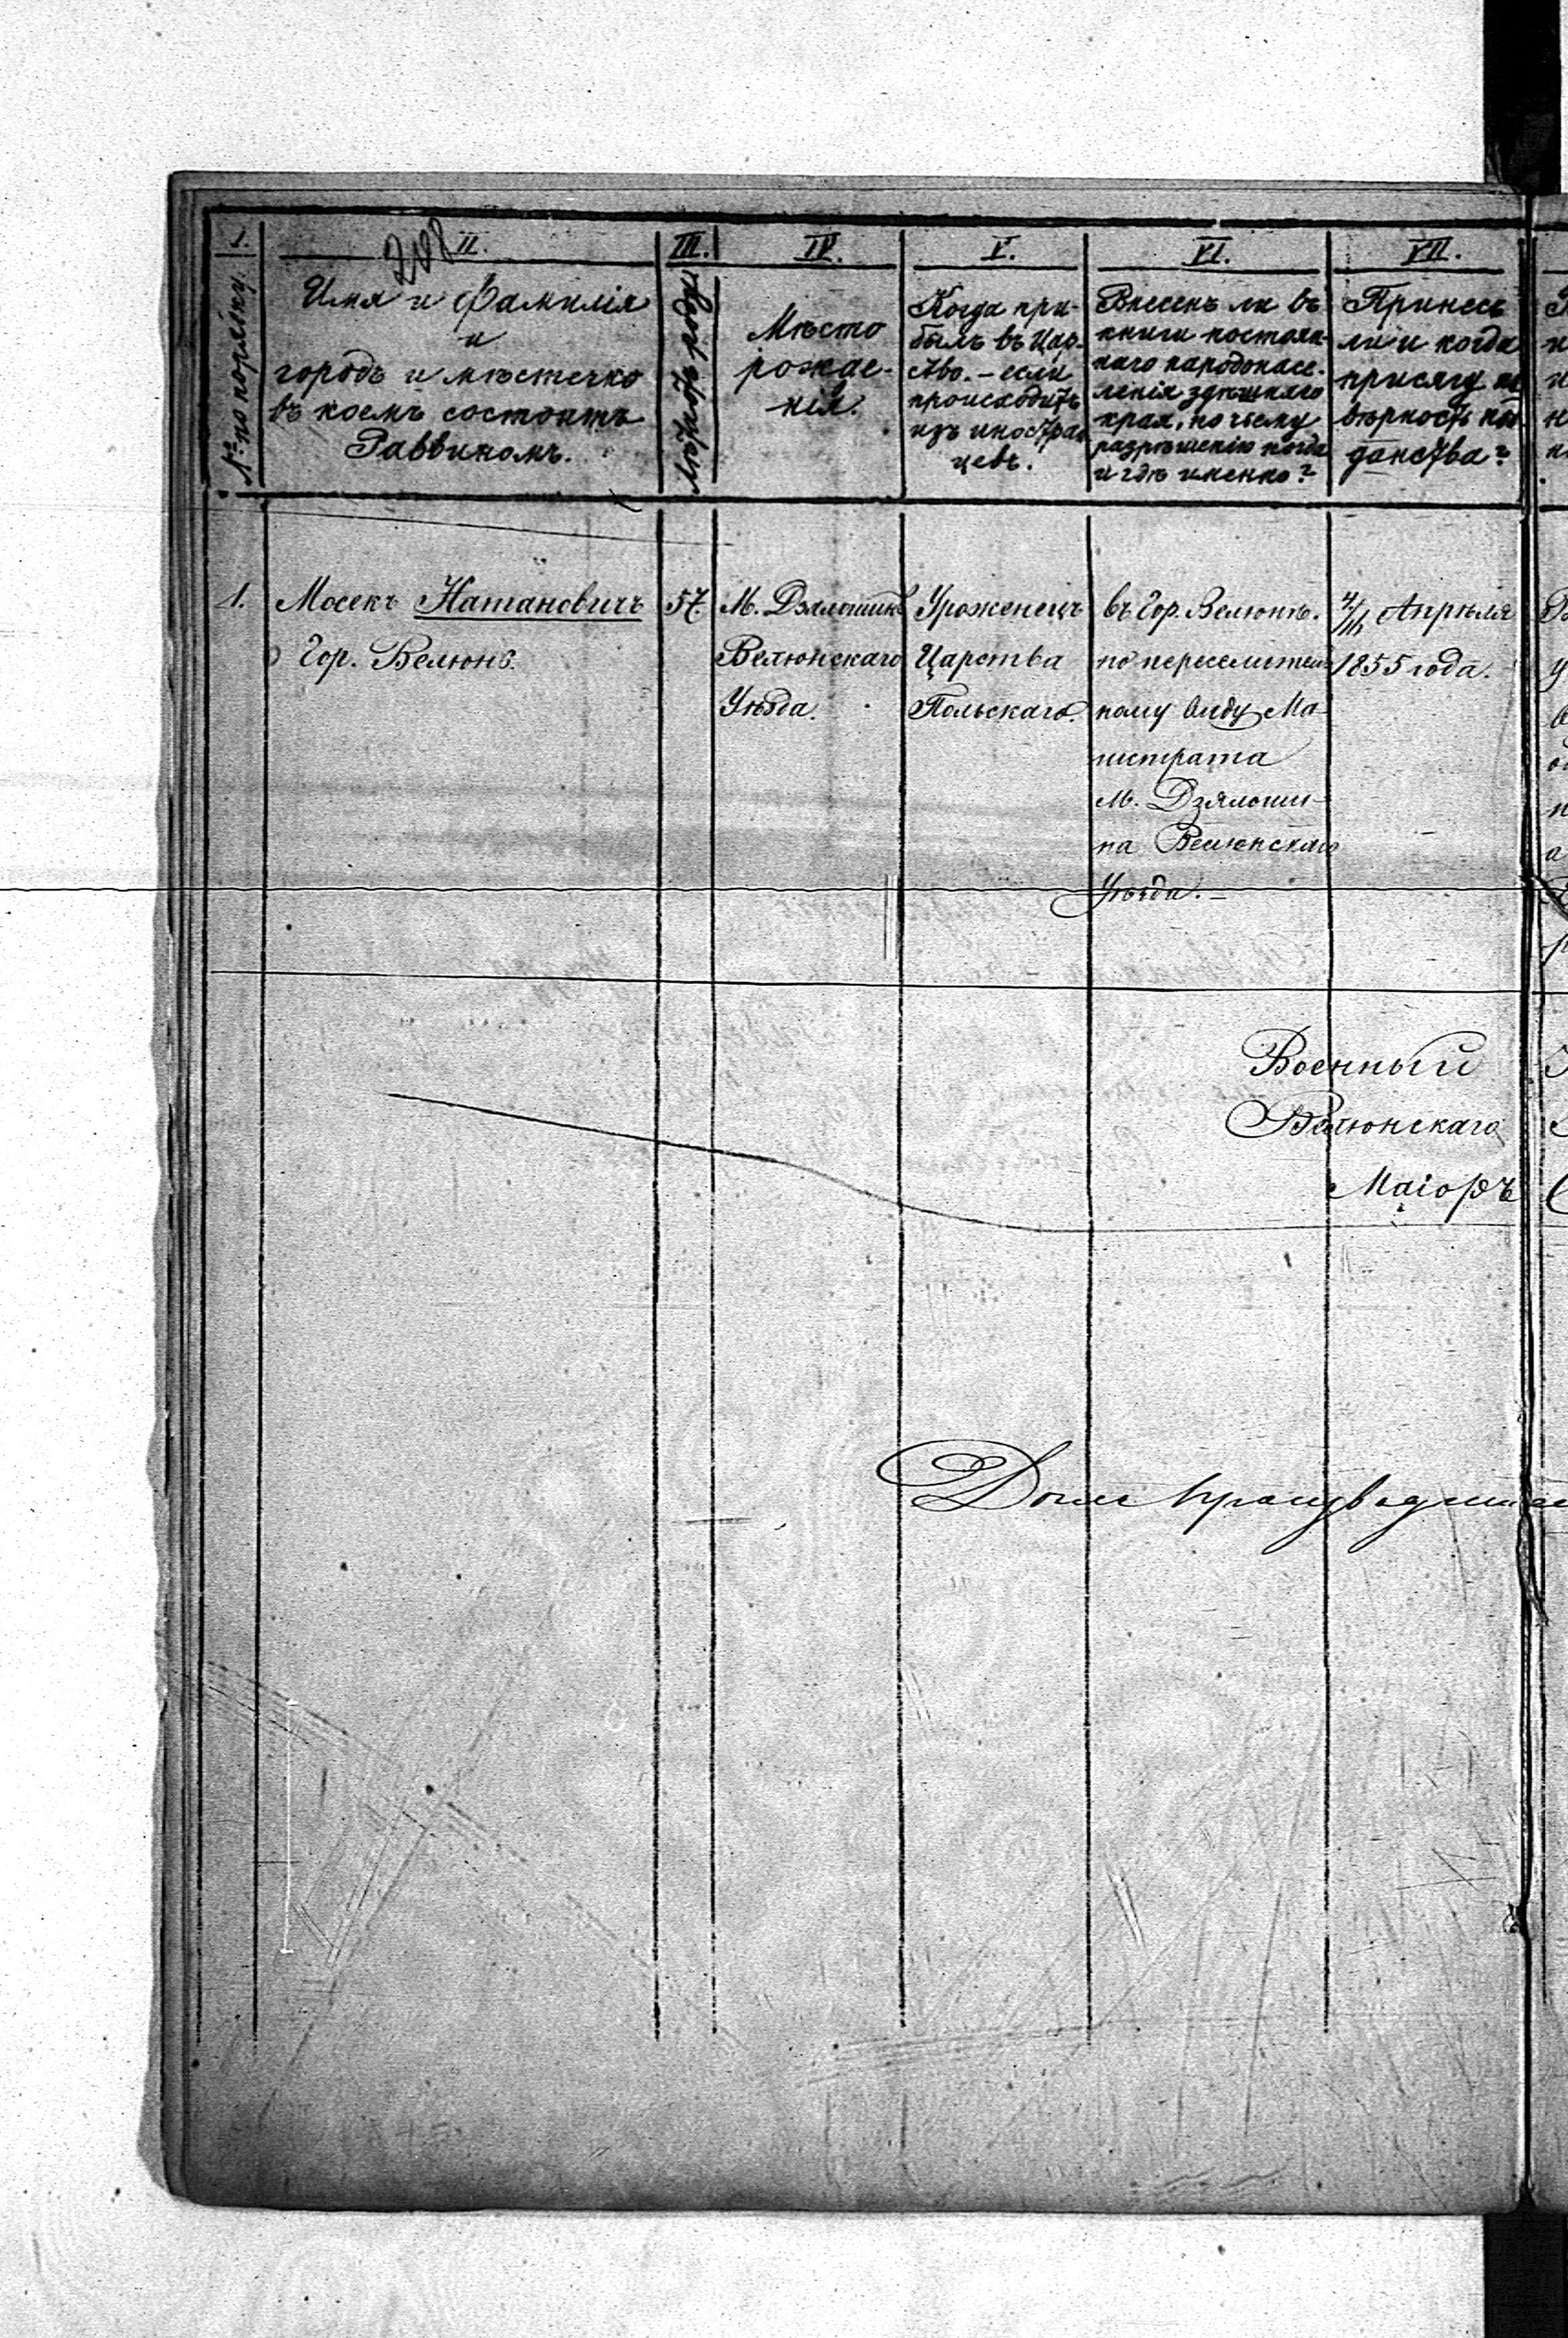 208
I.
№ по порядку.
II.
Имя и Фамилія
и
городъ и мѣстечко
въ коемъ состоитъ
Раввиномъ.
III.
IV.
Мѣсто
рожде-
нія.
V.
Когда при-
былъ въ Цар-
ство. – если
происходитъ
изъ иностран
цевъ.
VI.
Внесенъ ли въ
книги постоян-
наго народонасе-
ленія здѣшняго
края, по чьему
разрѣшенію когда
и гдѣ именно?
VII.
Принесъ
ли и когда
присягу на
вѣрность под
данства?
1.
Мосекъ Натановичъ
Гор. Велюнь.
57
М. Дзялошинъ
Велюнскаго
Уѣзда.
Уроженецъ
Царства
Польскаго.
въ Гор. Велюнѣ.
по переселитель
ному виду Ма-
гистрата
М. Дзялоши-
на Велюнскаго
Уѣзда. –
4/16 Апрѣля
1855 года.
Военный
Велюнскаго
Маіоръ